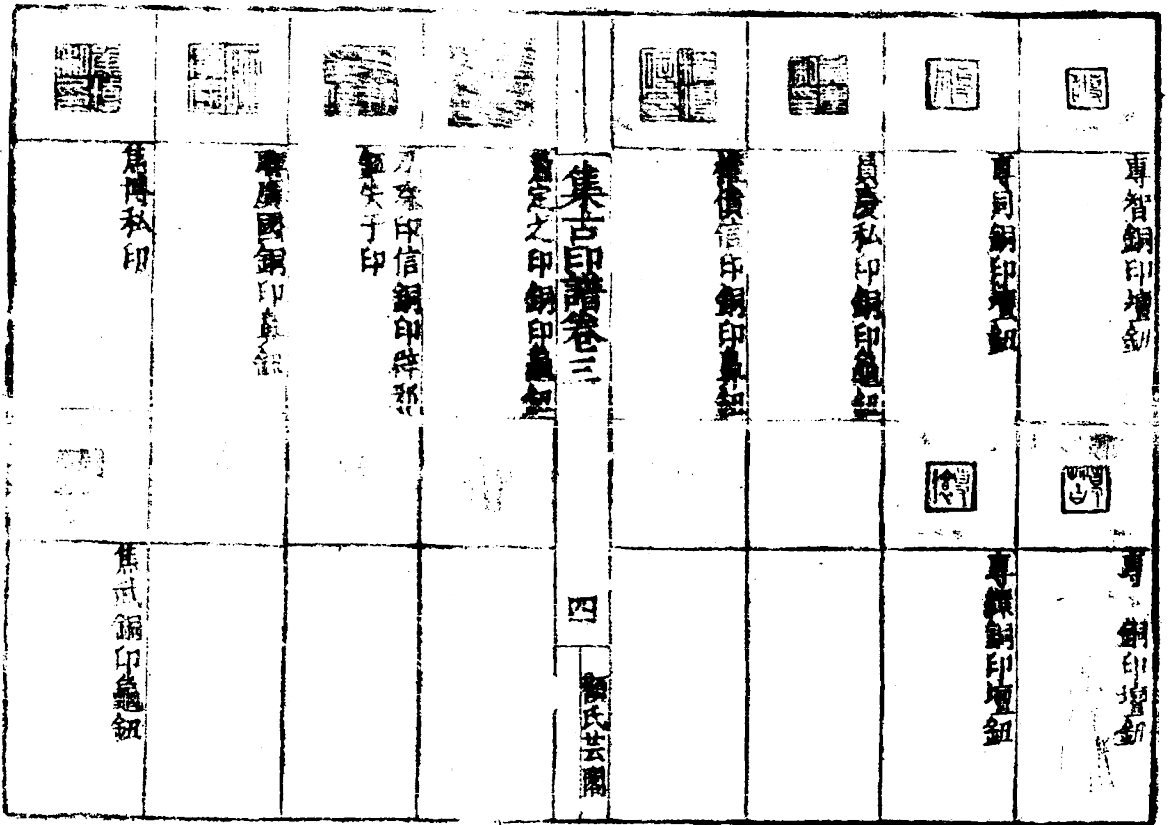 專智銅印壇鈕
專 銅印壇鈕
專同銅印壇鈕
專銅印壇鈕
員慶私印銅印龜鈕
權償信印銅印鼻鈕
集古印譜卷三
四
顧氏芸閣
定之印銅印龜鈕
印信銅印辟邪
鈕失子印
廣國銅印鼻鈕
焦博私印
焦武銅印龜鈕